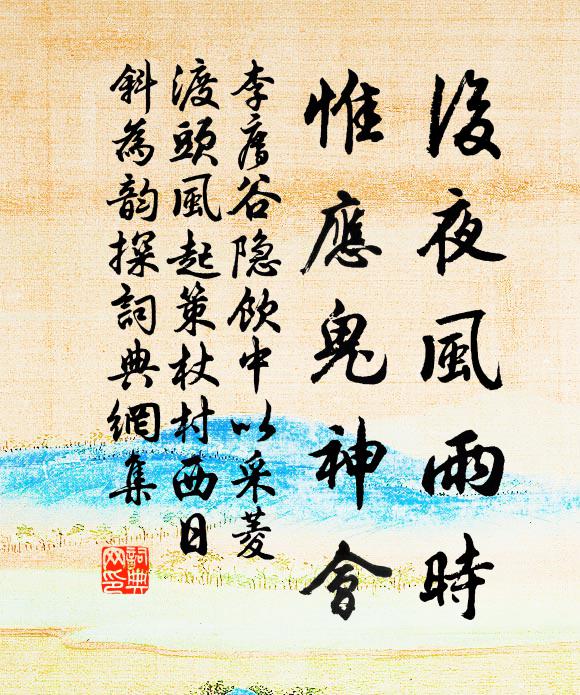 後夜風雨時
惟應鬼神會
李唐谷隐飲中以采菱
渡頭風起策杖村西日
斜為韵探詞典網集
詞典
网印